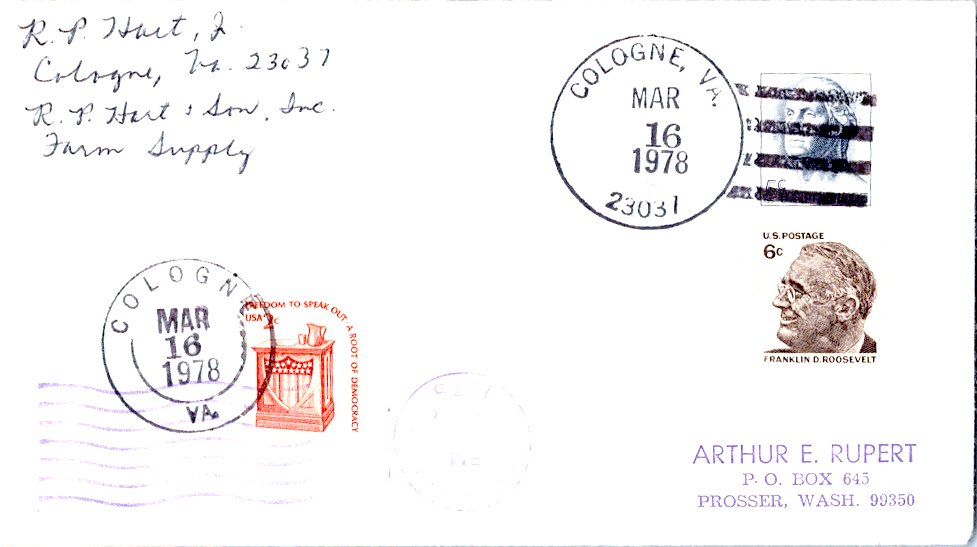 R. P. Hart, Jr.
Cologne, Va. 23037
R. P. Hart & Son, Inc.
Farm Supply
COLOGNE, VA.
MAR
16
1978
23037
5c
U.S. POSTAGE
6c
FRANKLIN D. ROOSEVELT
COLOGNE
MAR
16
1978
VA.
FREEDOM TO SPEAK OUT - A ROOT OF DEMOCRACY
USA 2c
ARTHUR E. RUPERT
P. O. BOX 645
PROSSER, WASH. 99350